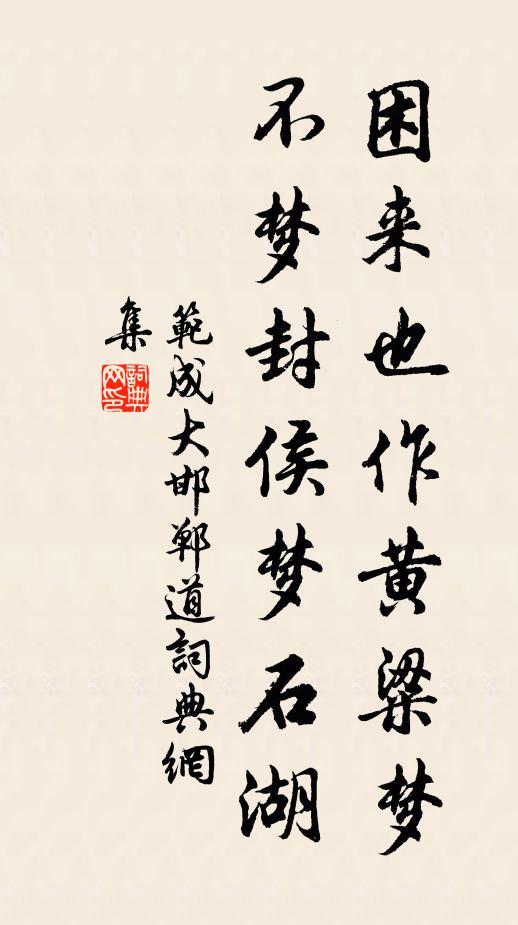 困来也作黄粱梦
不梦封侯梦石湖
範成大邯郸道詞典網
集
詞典网印